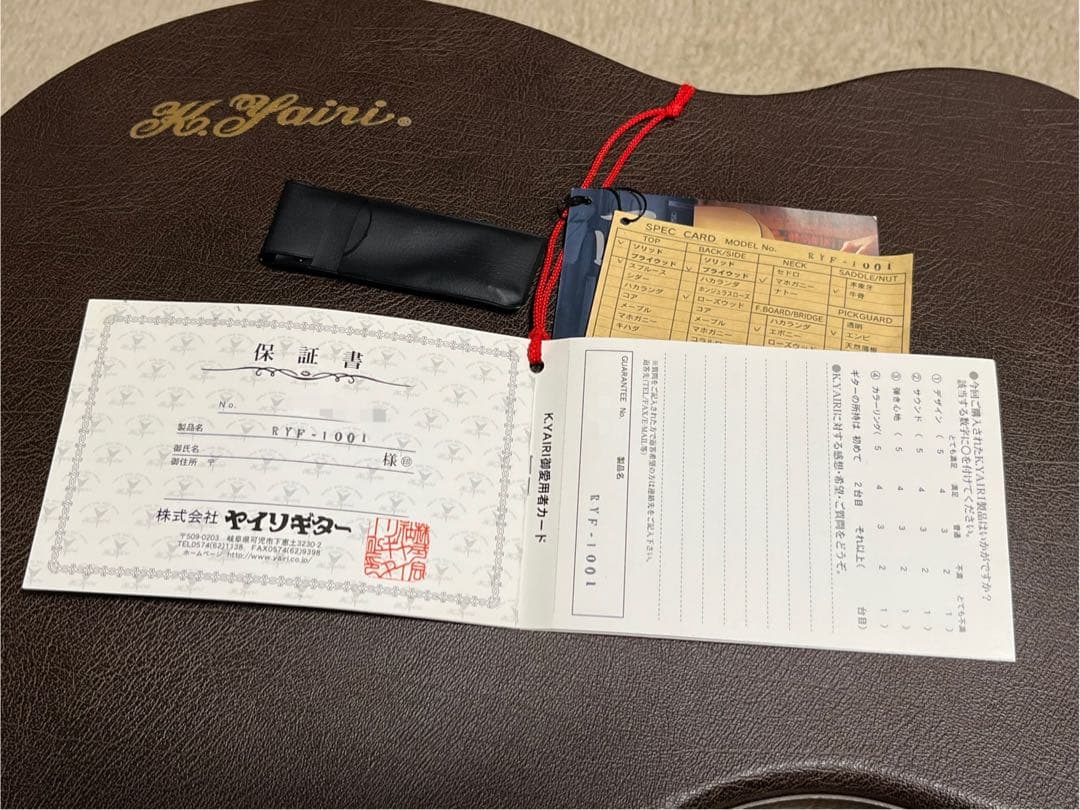 K.Yairi®
SPEC CARD MODEL No. RYF-1001
TOP
ソリッド
プライウッド
スプルース
シダー
ハカランダ
コア
メープル
マホガニー
キハダ
BACK/SIDE
ソリッド
プライウッド
ハカランダ
ホンジュラスローズ
ローズウッド
コア
メープル
マホガニー
NECK
セドロ
マホガニー
ナトー
F.BOARD/BRIDGE
ハカランダ
エボニー
SADDLE/NUT
本象牙
牛骨
PICKGUARD
透明
エンビ
保証書
No.
製品名 RYF-1001
御氏名 様㊞
御住所 〒
株式会社 ヤイリギター
〒509-0203 岐阜県可児市下恵土3230-2
TEL0574(62)1138 FAX0574(62)9398
ホームページ http://www.yairi.co.jp/
K.YAIRI御愛用者カード
●今回ご購入されたK.YAIRI製品はいかがですか?
該当する数字に○を付けてください。
とても満足 満足 普通 不満 とても不満
① デザイン ( 5 4 3 2 1 )
② サウンド ( 5 4 3 2 1 )
③ 弾き心地 ( 5 4 3 2 1 )
④ カラーリング( 5 4 3 2 1 )
ギターの所持は 初めて 2台目 それ以上( 台目)
●K.YAIRIに対する感想・希望・ご質問をどうぞ。
※質問をご記入された方で返答希望の方は連絡先をご記入下さい。
返答先(TEL/FAX/E-MAIL等)
GUARANTEE No. 製品名 RYF-1001